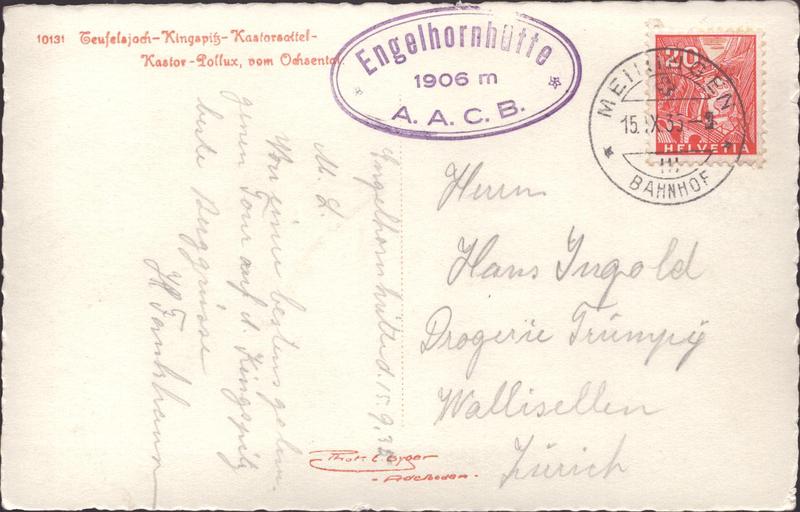 10131 Teufelsjoch-Kingspitz-Kastorsattel-
Kastor-Pollux, vom Ochsental.
Engelhornhütte
1906 m
A. A. C. B.
20
HELVETIA
MEIRINGEN
15. IX. 35
BAHNHOF
Engelhornhütte d. 15.9.35
M. L.
Von einer bestens gelun-
genen Tour auf d. Kingspitz
beste Berggrüsse
Herrn
Hans Ingold
Drogerie Trümpy
Wallisellen
Zürich
Phot. E. Gyger
- Adelboden -